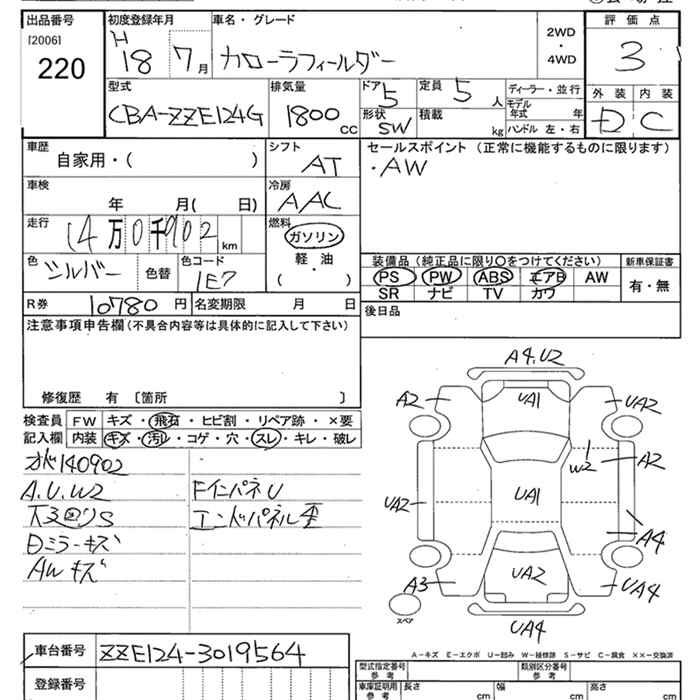 出品番号 初度登録年月 車名・グレード 評価点
[2006] 220 H 18 7月 カローラフィールダー 2WD・4WD 3
外装 内装
D C
型式 排気量 ドア 5 定員 5人 ディーラー・並行
CBA-ZZE124G 1800cc 形状 SW 積載 kg モデル年式 年
ハンドル 左・右
車歴 シフト セールスポイント (正常に機能するものに限ります)
自家用・( ) AT ・AW
車検 冷房
年 月( 日) AAC
走行 燃料
14万0千902km ガソリン
軽・油
( )
色 色コード
シルバー 色替 1E7
装備品(純正品に限り○をつけてください) 新車保証書
PS PW ABS エアB AW 有・無
SR ナビ TV カワ
R券 10780円 名変期限 月 日 後日品
注意事項申告欄(不具合内容等は具体的に記入して下さい)
修復歴 有 〔箇所 〕
検査員 FW キズ・飛石・ヒビ割・リペア跡・×要
記入欄 内装 キズ・汚レ・コゲ・穴・スレ・キレ・破レ
140902
A.U.W2 FインパネU
下回りS エンドパネル歪
Dミラーキズ
AWキズ
A4.U2
A2 UA1 UA2
W2 A2
UA2 UA1
A4
A3 UA2 UA4
スペア
UA4
A-キズ E-エクボ U-凹み W-補修跡 S-サビ C-腐食 ××-交換済
車台番号 ZZE124-3019564
型式指定番号 参考 類別区分番号 参考
登録番号
車庫証明用 参考 長さ cm 幅 cm 高さ cm